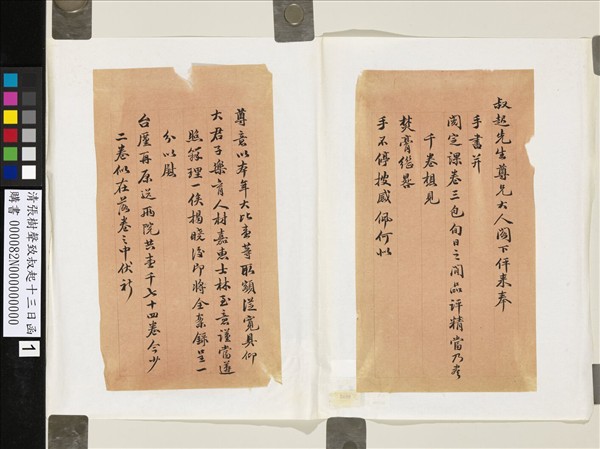 叔起先生尊兄大人閣下伻來奉
手書并
閱定課卷三包旬日之間品評精當乃
千卷想見
焚膏繼晷
手不停披感佩何似
尊意以本年大比壹等取額從寬具仰
大君子樂育人材嘉惠士林至意謹當遵
照辦理一俟揭曉後即將全案錄呈一
分以慰
台厪再原送兩院共壹千七十四卷今少
二卷似在落卷之中伏祈
清張樹聲致叔起十三日函
購書 000082N000000000
1